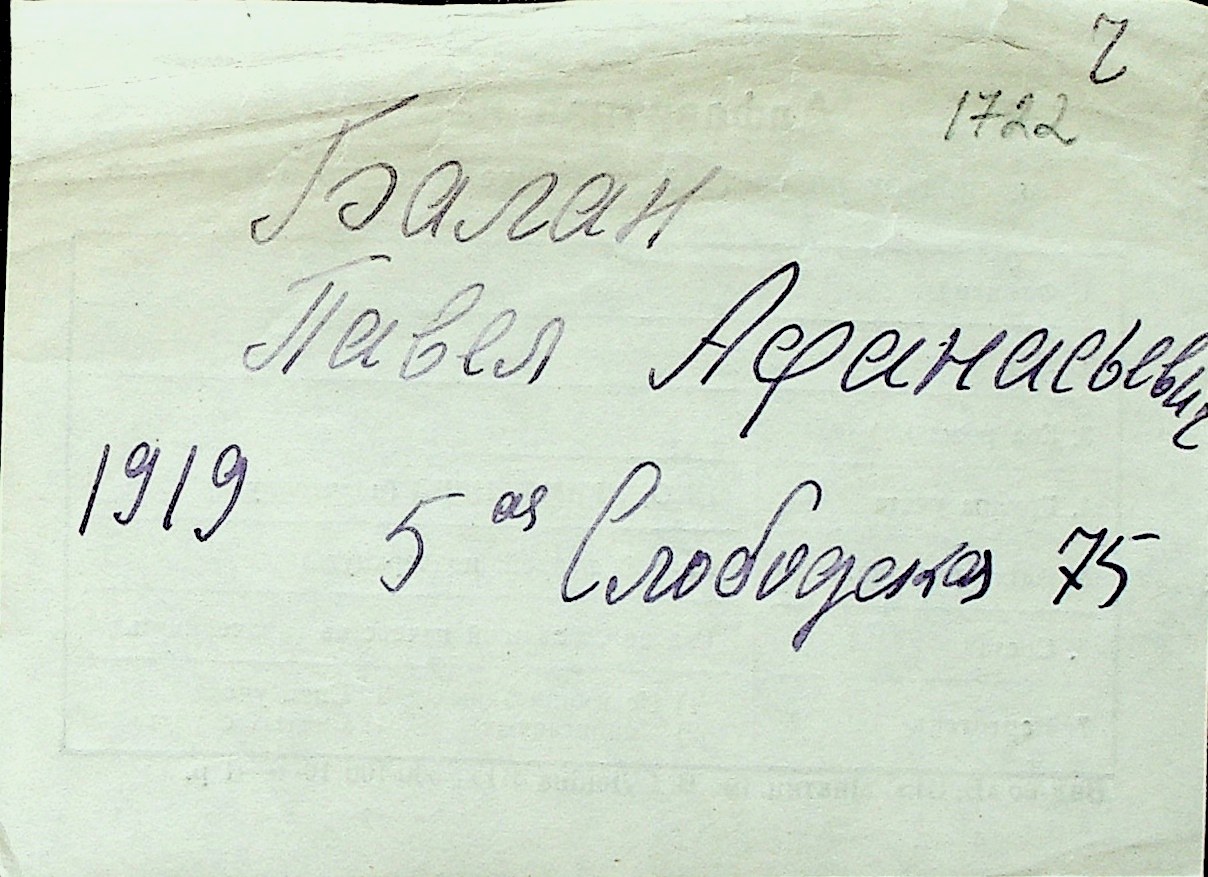 1722
Балан
Павел Афанасьевич
1919 5ая Слободская 75